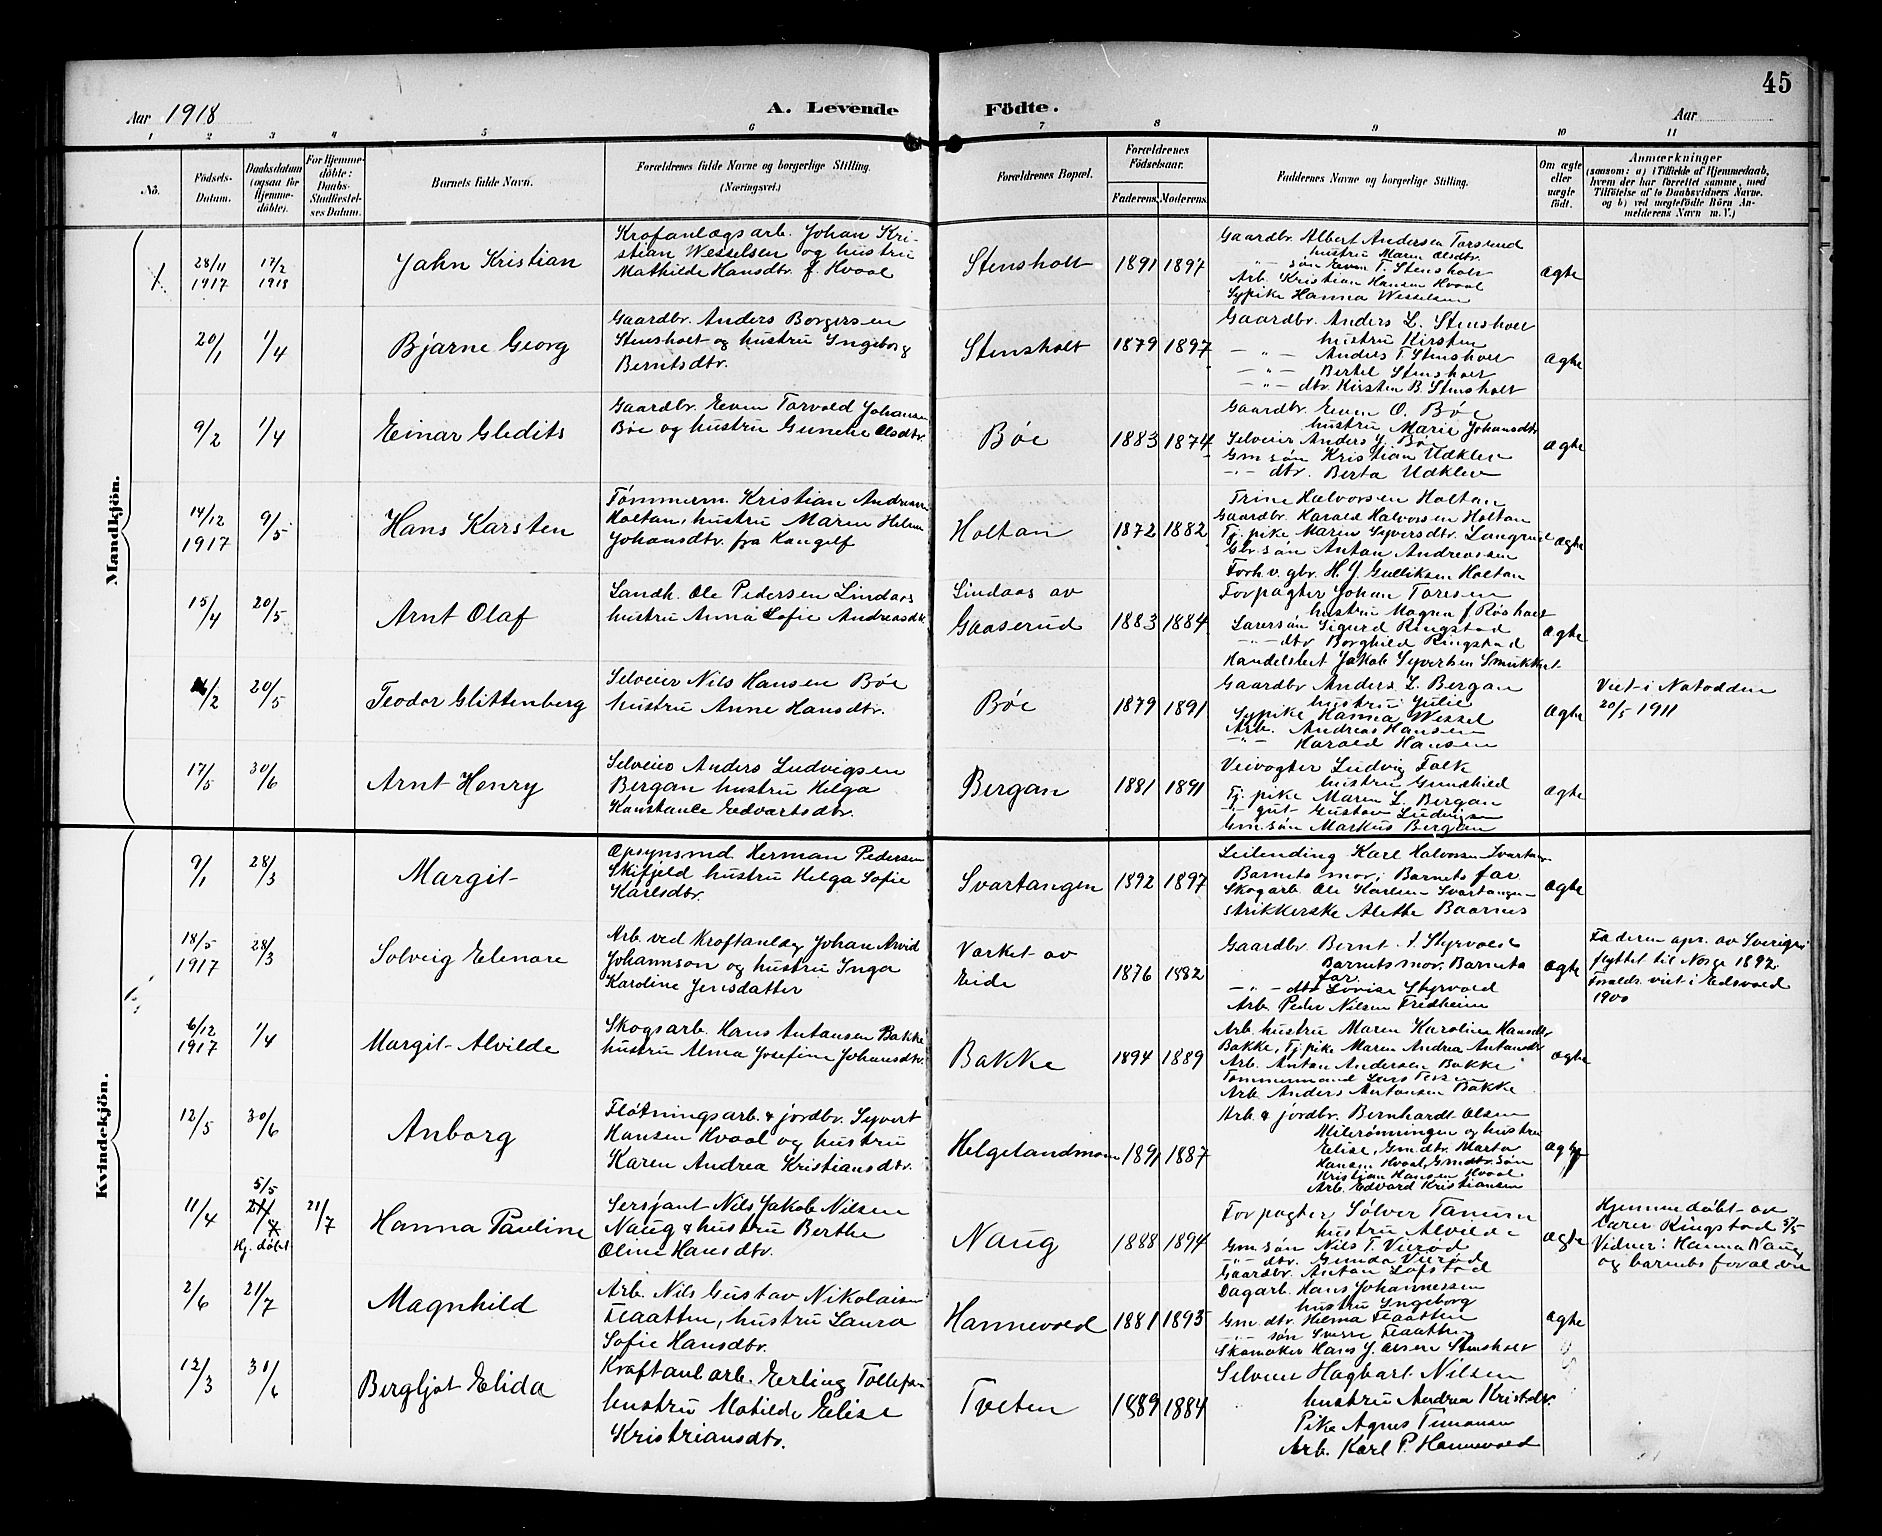 45
Aar 1918
A. Levende Födte.
Aar
1 2 3 4 5 6 7 8 9 10 11
Nö.
Födsels-Datum.
Daabsdatum (ogsaa for Hjemmedöbte).
For Hjemmedöbte: Daabs-Stadfæstelses Datum.
Barnets fulde Navn.
Forældrenes fulde Navne og borgerlige Stilling. (Næringsvei.)
Forældrenes Bopæl.
Forældrenes Födselsaar.
Faderens. Moderens.
Faddernes Navne og borgerlige Stilling.
Om ægte eller uægte födt.
Anmærkninger
(saasom: a) i Tilfælde af Hjemmedaab, hvem der har forrettet samme, med Tilföielse af to Daabsvidners Navne, og b) ved uægtefödte Börn Anmelderens Navn m. V.)
Mandkjön.
28/11 1917 17/2 1918
Jahn Kristian
Krafanlægsarb. Johan Kri-
stian Wesselsen og hustru
Mathilde Hansdtr. f. Hvaal
Stensholt 1891 1897
Gaardbr. Albert Andersen Torsund
hustru Maren Olsdtr.
søn Even T. Stensholt
Arb. Kristian Hansen Hvaal
Sypike Hanna Wesselsen
ægte
20/1 1/4
Bjarne Georg
Gaardbr. Anders Borgersen
Stensholt og hustru Ingeborg
Berntsdtr.
Stensholt 1879 1897
Gaardbr. Anders L. Stensholt
hustru Kirsten
— " — Anders T. Stensholt
— " — Bertel Stensholt
— " — dtr. Kirsten B. Stensholt
ægte
9/2 1/4
Einar Gledits
Gaardbr. Even Torvald Johansen
Bøe og hustru Guneke Olsdtr.
Bøe 1883 1874
Gaardbr. Even O. Bøe
hustru Marie Johansdtr
Selveier Anders J. Bøe
Gm.søn Kristian Udklev
— " — dtr. Berta Udklev
ægte
14/12 1917 9/5
Hans Karsten
Tømmerm. Kristian Andreasen
Holtan, hustru Maren Helene
Johansdtr. fra Kangelf
Holtan 1872 1882
Trine Halvorsen Holtan
Gaardbr. Harald Halvorsen Holtan
Tj. pike Maren Syversdtr. Langrud
Gbr. søn Antan Andreassen
Forh.v. gbr. H. J. Gulliksen Holtan
ægte
15/4 20/5
Arnt Olaf
Landh. Ole Pedersen Lindaas
hustru Anna Sofie Andreasdtr.
Lindaas av
Gaaserud 1883 1884
Forpagter Johan Toresen
hustru Magna f. Røsholt
Lærersøn Sigurd Ringstad
— " — dtr Borghild Ringstad
Handelsbet Jakob Syvertsen Smukkest.
ægte
/2 20/5
Teodor Glittenberg
Selveier Nils Hansen Bøe
hustru Anne Hansdtr.
Bøe 1879 1891
Gaardbr Anders L. Bergan
hustru Julie
Sypike Hanna Wessel
Arb. Andreas Hansen
— " — Harald Hansen
ægte
Viet i Notodden
20/5 1911
17/5 30/6
Arnt Henry
Selveier Anders Ludvigsen
Bergan hustru Helga
Konstanse Edvartsdtr.
Bergan 1881 1891
Veivogter Ludvig Falk
hustru Gunnhild
Tj. pike Maren L. Bergan
— " — gut Gustav Ludvigsen
Gm.søn Markus Bergan
ægte
Kvindekjön.
9/1 28/3
Margit
Opsynsmd. Herman Pedersen
Skifjeld hustru Helga Sofie
Karlsdtr.
Svartangen 1892 1897
Leilending Karl Halvorsen Svartan-
Barnets mor, Barnets far
Skogarb. Ole Karlsen Svartangen
Strikkerske Alette Baarnes
ægte
18/5 1917 28/3
Solveig Elenore
Arb. ved Kraftanlæg Johan Arvid
Johannson og hustru Inga
Karoline Jensdatter
Værket av
Eide 1876 1882
Gaardbr Bernt S. Styrvold
Barnets mor, Barnets
far
— " — dtr Lovise Styrvold
Arb. Peder Nilsen Fredheim
ægte
Faderen opr. av Sverige,
flyttet til Norge 1892.
Foreldr. viet i Eidsvold
1900
6/12 1917 1/4
Margit Alvilde
Skogsarb. Hans Antansen Bakke
hustru Alma Josefine Johansdtr.
Bakke 1894 1889
Arb. hustru Maren Karoline Hansdtr
Bakke, Tj. pike Maren Andrea Antansdtr
Arb. Antan Andersen Bakke
Tømmermand Lars
Arb. Anders Antonsen Bakke
ægte
12/5 30/6
Anborg
Fløtningsarb. & jordbr. Syvert
Hansen Hvaal og hustru
Karen Andrea Kristiansdtr.
Helgelandmoen 1891 1887
Arb & jordbr. Bernhardt Olsen
Milerønningen og hustru
Elise, Gm.dtr. Marta
Hansen Hvaal, Gmdbr. søn
Kristian Hanssen Hvaal
Arb. Edvard Kristiansen
ægte
11/4 5/5 Hj. døbt 21/7
Hanna Pauline
Sersjant Nils Jakob Nilsen
Naug & hustru Berthe
Oline Hansdtr.
Naug 1888 1894
Forpagter Sølver Tanum
hustru Alvilde
Gm.søn Nils T. Vierød
— " — dtr. Gunda Vierød
Gaardbr. Antan Løfstad
ægte
Hjemmedøbt av
lærer Ringstad 5/5
Vidner: Hanna Naug
og barnets forældre
2/6 21/7
Magnhild
Arb. Nils Gustav Nikolaisen
Flaatten, hustru Laura
Sofie Hansdtr.
Hannevold 1881 1893
Dagarb. Hans Johannessen
hustru Ingeborg
Gm dtr. Helma Flaatten
— " — søn Sverre Flaatten
Skomaker Hans J. Olsen Stensholt
ægte
12/3 30/6
Bergljot Elida
Kraftanl.arb. Erling Tollefsen
hustru Matilde Elise
Kristriansdtr.
Tveten 1889 1884
Selveier Hagbart Nilsen
hustru Andrea Kristofdtr.
Pike Agnes Timansen
Arb. Karl P. Hannevold